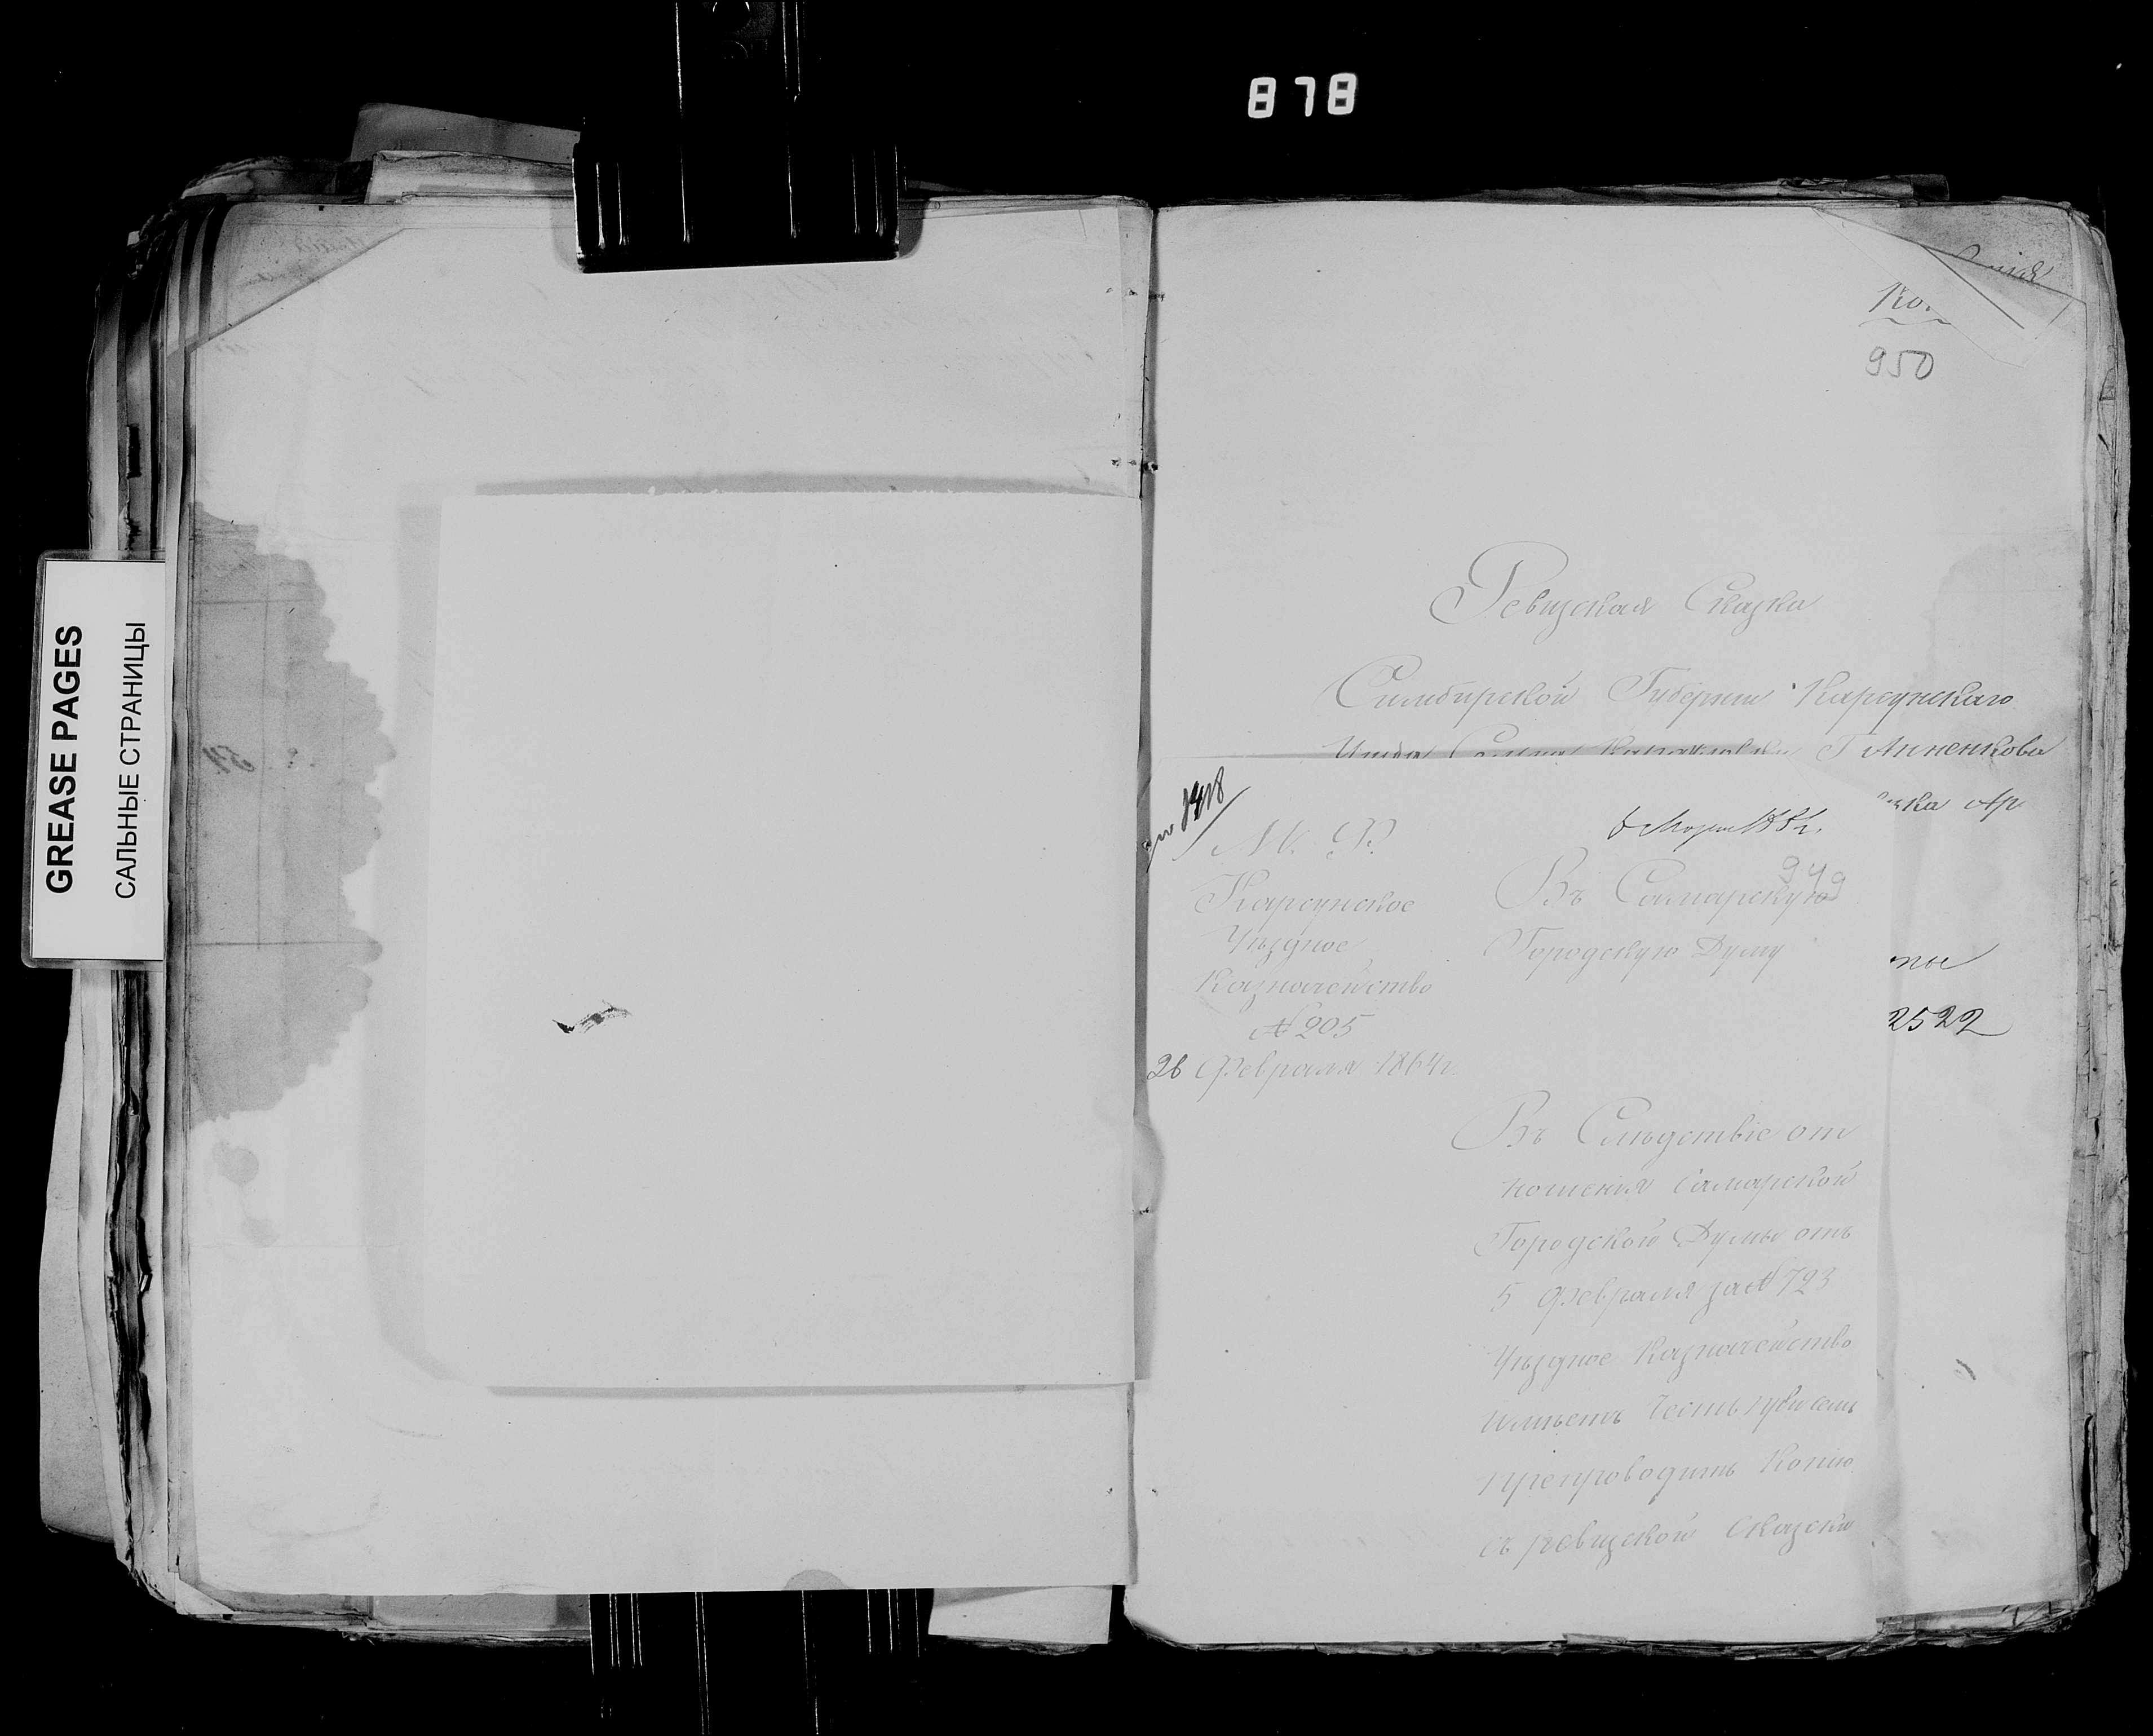 878
GREASE PAGES
САЛЬНЫЕ СТРАНИЦЫ
950
Ревизская Сказка
Симбирской Губернии Карсунскаго
Г. Анненкова
2522
М. Ф.
Карсунское
Уѣздное
Казначейство
№ 205
26 Февраля 1864 г.
949
Въ Самарскую
Городскую Думу
Въ Слѣдствіе от
ношенія Самарской
Городской Думы отъ
5 Февраля за № 723
Уѣздное Казначейство
имѣетъ честь при семъ
препроводить Копію
съ ревизской Сказки